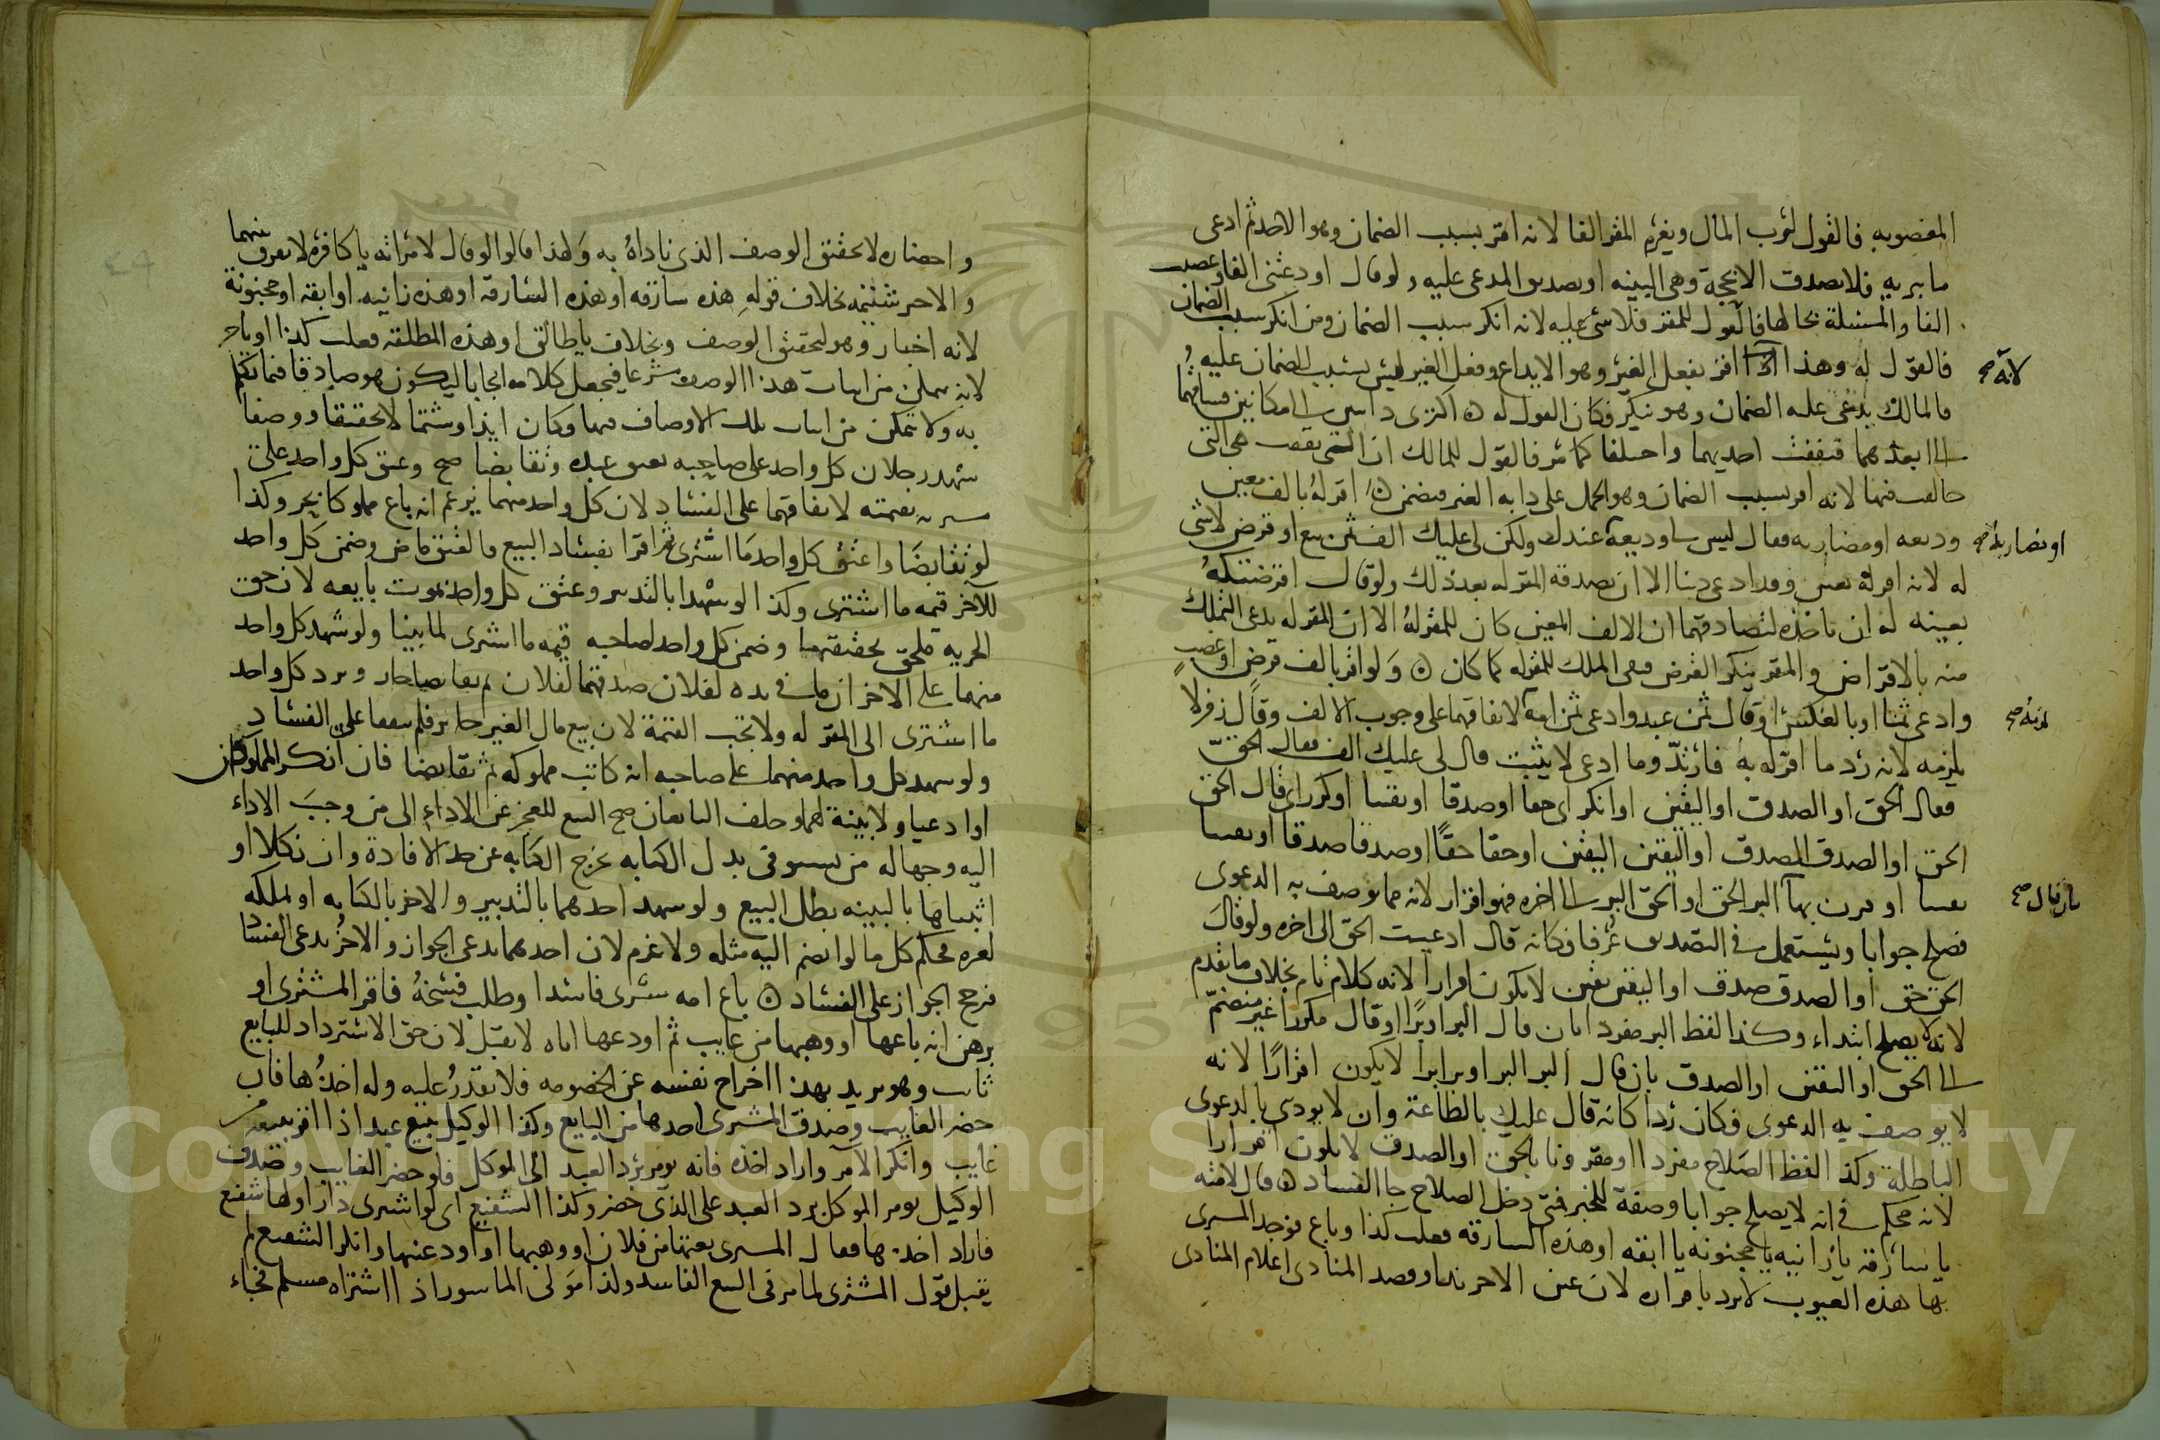 المغصوبه فالقول لرب المال ويغرم المقر الفا لانه اقر بسبب الضمان وهو الاخذ ثم ادعى
ما يبريه فلا يصدق الا بحجة وهى البينه او تصديق المدعى عليه ولو قال اودعتنى الفا وغصبت
الفا والمسئلة بحالها فالقول للمقر فلا شى عليه لانه انكر سبب الضمان ومن انكر سبب الضمان
فالقول له وهذا اقر بفعل الغير وهو الايداع وفعل الغير ليس بسبب الضمان عليه و
لانه صح
فالمالك يدعى عليه الضمان وهو ينكر فكان القول له اكترى دابتين الى مكانين
الى ابعدهما فنفقت احديهما واختلفا كما مر فالقول للمالك ان التى نفقت هى التى
خالف فيها لانه اقر بسبب الضمان وهو الحمل على دابه الغير فيضمن اقر له بالف بعين
وديعه او مضاربه فقال ليس لى وديعة عندك ولكن لى عليك الف ثمن بيع او قرض لا شى
او مضاربة صح
له لانه اقر له بعين وقد ادعى دينا الا ان يصدقه المقر له بعد ذلك ولو قال اقرضتكه
بعينه له ان ياخذه لتصادقهما ان الالف المعين كان للمقر له الا ان المقر له يدعى التملك
منه بالاقراض والمقر ينكر القرض فبقى الملك للمقر له كما كان ولو اقر بالف قرض او غصب
وادعى ثمنا او بالعكس او قال ثمن عبد وادعى ثمن امة لاتفاقهما على وجوب الالف وقال زفر لا
لزمه صح
يلزمه لانه رد ما اقر له به فارتد وما ادعى لا يثبت قال لى عليك الف فقال الحق
فقال الحق او الصدق او اليقين او انكر اى حقا او صدقا او يقينا او كرر اى قال الحق
الحق او الصدق الصدق او اليقين اليقين او حقا حقا او صدقا صدقا او يقينا
يقينا او قرن بها البر الحق او الحق البر الى اخره فهو اقرار لانه مما يوصف به الدعوى
بان قال صح
فصلح جوابا ويستعمل فى التصديق عرفا فكانه قال ادعيت الحق الى اخره ولو قال
الحق حق او الصدق صدق او اليقين يقين لا يكون اقرارا لانه كلام تام بخلاف ما تقدم
لانه لا يصلح ابتداء وكذا لفظ البر مفردا بان قال البر او برا او قال مكررا غير منضم
الى الحق او اليقين او الصدق بان قال البر البر او برا برا لا يكون اقرارا لانه
لا يوصف به الدعوى فكان ردا كانه قال عليك بالطاعة وان لا يوذى بالدعوى
الباطلة وكذا لفظ الصلاح مفردا او مقرونا بالحق او الصدق لا يكون اقرارا
لانه محكم فى انه لا يصلح جوابا وصفة للخبر فمتى دخل الصلاح جا الفساد قال لامته
يا سارقه يا زانيه يا مجنونه يا ابقه او هذه السارقه فعلت كذا وباع فوجد المشترى
بها هذه العيوب لا يرد باقراره لان عين الاحر ندا وقصد المنادى اعلام المنادى
واحضاره لا تحقيق الوصف الذى ناداه به ولهذا قالوا لو قال لامراته يا كافره لا يفرق بينهما
والاحر شتيمه بخلاف قوله هذه سارقه او هذه السارقه او هذه زانيه او ابقه او مجنونة
لانه اخبار وهو لتحقيق الوصف وبخلاف يا طالق او هذه المطلقه فعلت كذا او يا حر
لانه يتمكن من اثبات هذا الوصف شرعا فيجعل كلامه ايجابا ليكون هو صادقا فيما تكلم
به ولا يتمكن من اثبات تلك الاوصاف فيها وكان ايذا وشتما لا تحقيقا ووصفا
شهد رجلان كل واحد على صاحبه بعتق عبده وتقابضا صح وعتق كل واحد على
مشتريه بقيمته لاتفاقهما على الفساد لان كل واحد منهما يزعم انه باع مملوكا بحر وكذا
لو تقابضا واعتق كل واحد ما اشترى ثم اقرا بفساد البيع فالعتق ماض وضمن كل واحد
للآخر قيمه ما اشترى وكذا لو شهدا بالتدبير وعتق كل واحد بموت بايعه لان حق
الحريه ملحق بحقيقتها وضمن كل واحد لصاحبه قيمه ما اشترى لما بينا ولو شهد كل واحد
منهما على الاخر ان ما فى يده لفلان صدقهما لفلان ثم تقابضا جاز ويرد كل واحد
ما اشترى الى المقر له ولا تجب القيمة لان بيع مال الغير جايز فلم يتفقا على الفساد
ولو شهد كل واحد منهما على صاحبه انه كاتب مملوكه ثم تقابضا فان انكر المملوكان
او ادعيا ولا بينة لهما وحلف البايعان صح البيع للعجز عن الاداء الى من وجب الاداء
اليه وجهاله من يستوفى بدل الكتابه يخرج الكتابه عن حد الافادة وان نكلا او
اثبتاها بالبينه بطل البيع ولو شهد احدهما بالتدبير والاخر بالكتابه او تملكه
لغيره فحكم كل ما لو انضم اليه مثله ولا غرم لان احدهما يدعى الجواز والاخر يدعى الفساد
فرجح الجواز على الفساد باع امه بشرى فاسدا وطلب فسخه فاقر المشترى او
برهن انه باعها او وهبها من غايب ثم اودعها اياه لا يقبل لان حق الاسترداد للبايع
ثابت وهو يريد بهذا اخراج نفسه عن الخصومه فلا يقدر عليه وله اخذها فان
حضر الغايب وصدق المشترى اخدها من البايع وكذا الوكيل ببيع عبد اذا اقر ببيعه من
غايب وانكر الآمر واراد اخذه فانه يومر برد العبد الى الموكل فلو حضر الغايب وصدق
الوكيل يومر الموكل برد العبد على الذى حضر وكذا الشفيع اى لو اشترى دارا ولها شفيع
فاراد اخذها فقال المشترى بعتها من فلان او وهبها او اودعنيها وانكر الشفيع لم
يقبل قول المشترى لما مر فى البيع الفاسد وكذا مولى الماسور اذا اشتراه مسلم فجاء